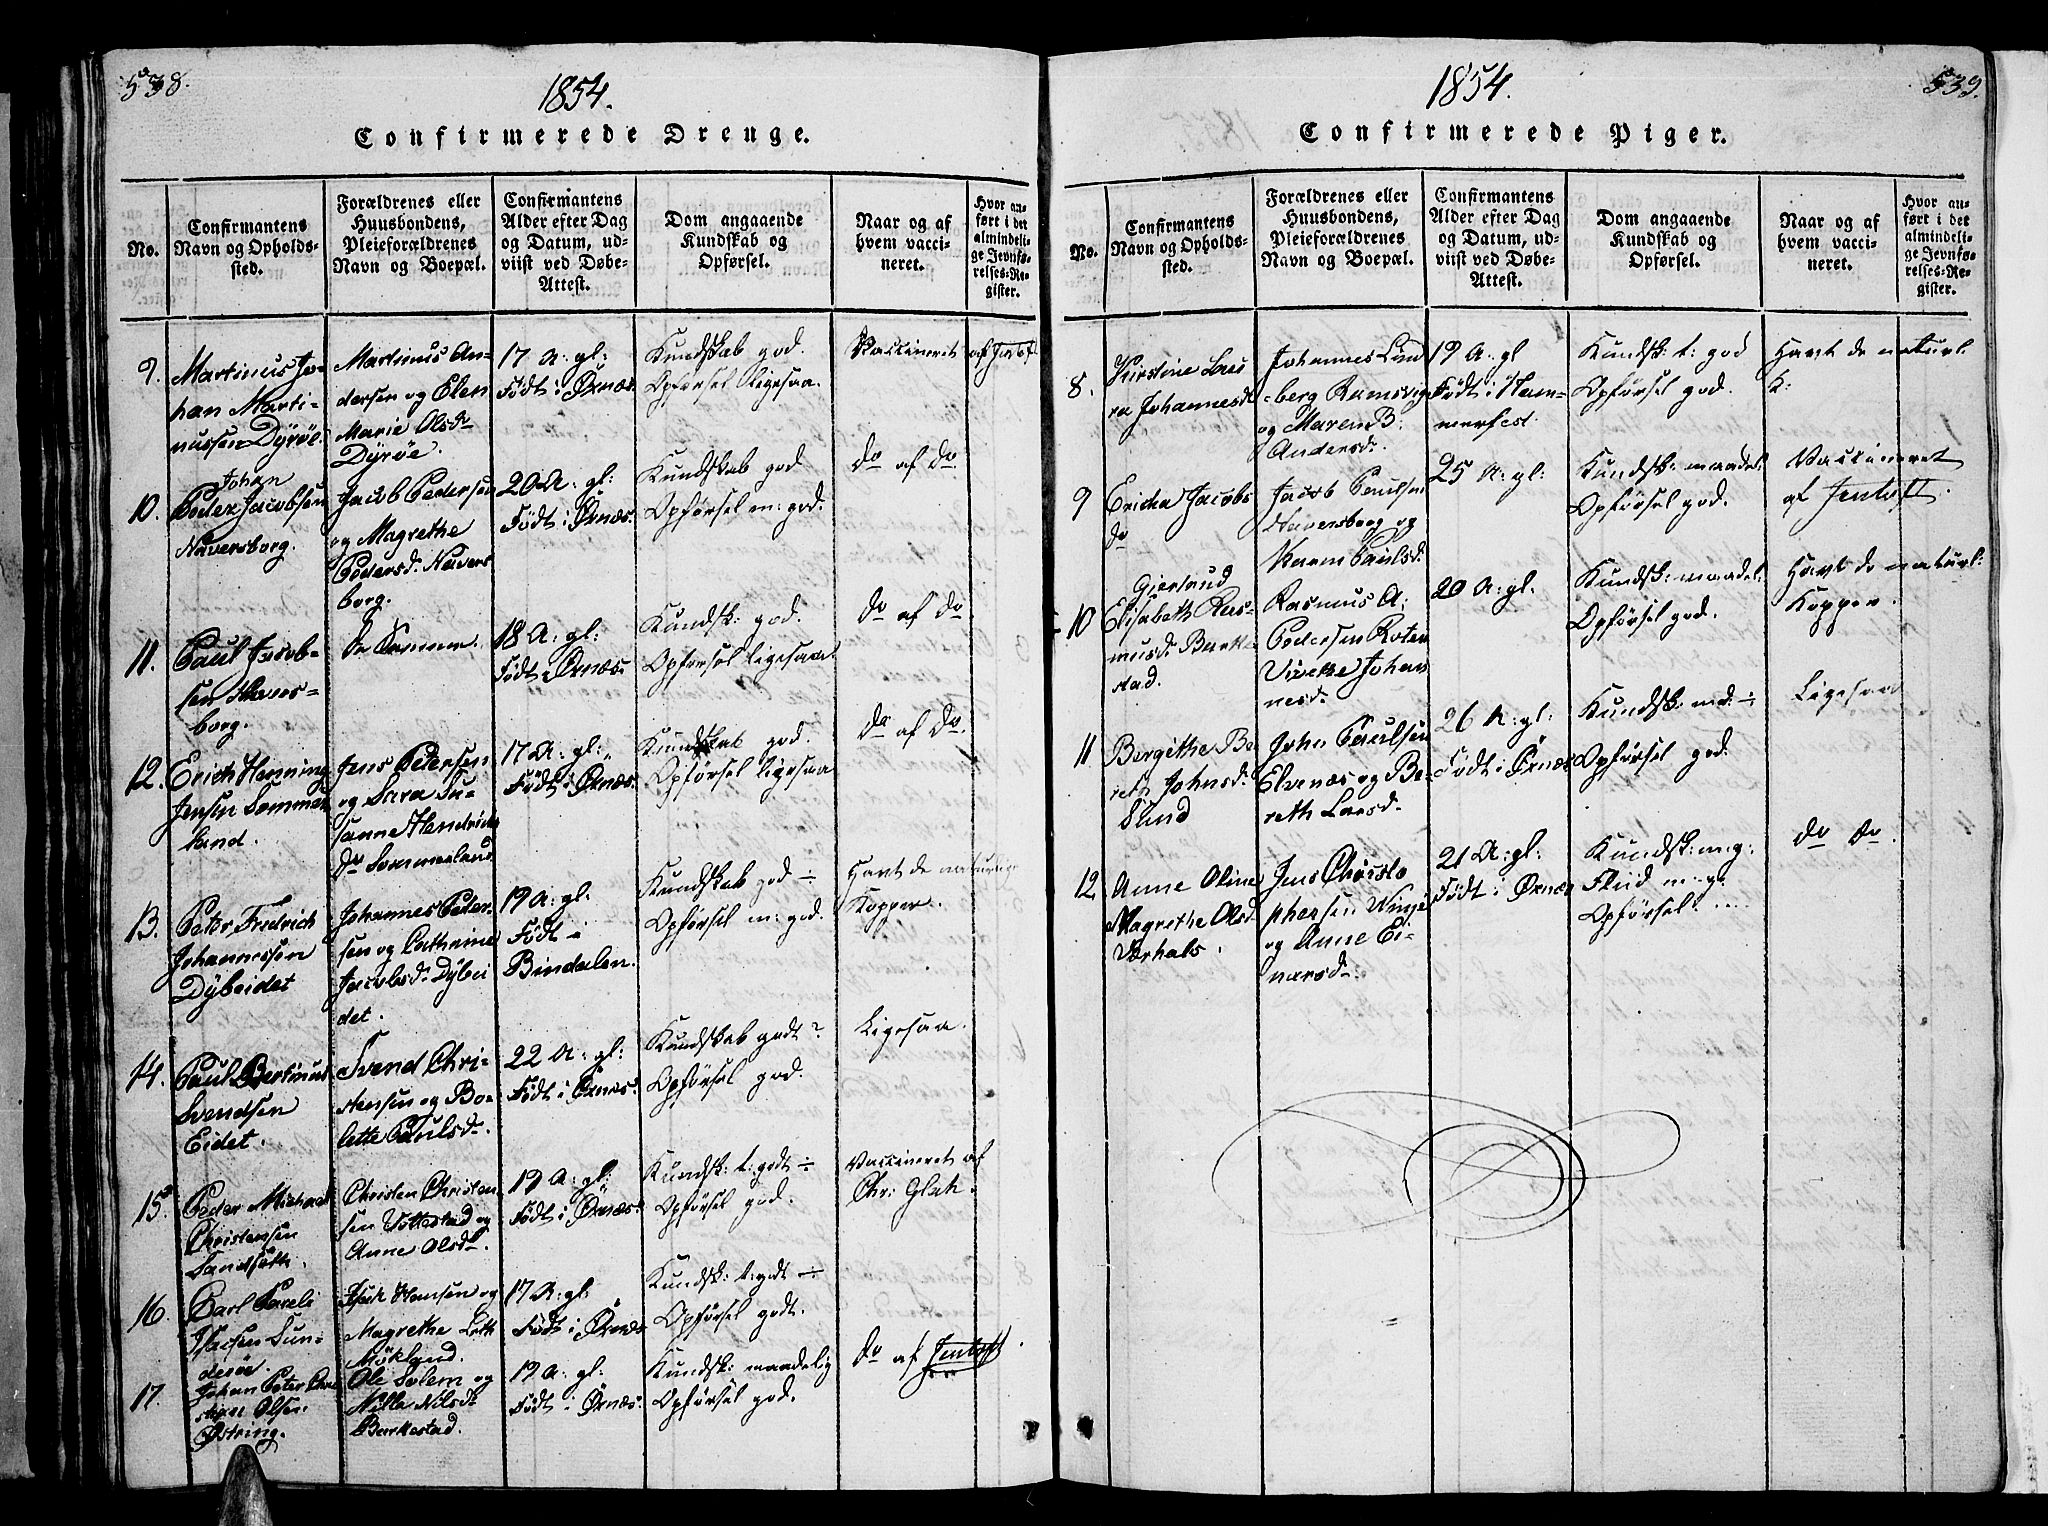 538.
1854.
Confirmerede Drenge.
No.
Confirmantens
Navn og Opholds-
sted.
Forældrenes eller
Huusbondens,
Pleieforældrenes
Navn og Boepæl.
Confirmantens
Alder efter Dag
og Datum, ud-
viist ved Døbe-
Attest.
Dom angaaende
Kundskab og
Opførsel.
Naar og af
hvem vacci-
neret.
Hvor an-
ført i det
almindeli-
ge Jevnfø-
relses-Re-
gister.
9.
Martinus Jo-
han Marti-
nussen Dÿrøe.
Martinus An-
dersen og Elen
Marie Olsdr
Dÿrøe.
17 A: gl:
Født i Ørnæs
Kundskab god.
Opførsel ligesaa.
Vaccineret
af Jentoft
10.
Johan
Peder Jacobsen
Haversborg.
Jacob Pedersen
og Magrethe
Pedersd. Havers
borg.
20 A: gl:
Født i Ørnæs.
Kundskab god
Opførsel m: god.
Do af Do
11.
Paul Jacob-
sen Havers-
borg.
De Samme.
18 A: gl:
Født i Ørnæs
Kundsk: god.
Opførsel ligesaa
Do af Do
12.
Erich Henning
Jensen Sommer
land.
Jens Petersen
og Sara Su-
sanne Hendrichs
dr Sommerland
17 A: gl:
Født i Ørnæs.
Kundskab god.
Opførsel ligesaa
Do af Do.
13.
Peter Fredrich
Johannessen
Dÿbeidet
Johannes Peder-
sen og Cathrine
Jacobsd. Dÿbei
det.
19 A: gl:
Født i
Bindalen.
Kundskab god ÷
Opførsel m: god.
Havt de naturlig
Kopper.
14.
Paul Bertinus
Svendsen
Eidet.
Svend Chri-
stensen og Bo-
lette Paulsd.
22 A: gl:
Født i Ørnæs.
Kundskab godt?
Opførsel god.
Ligesaa.
15.
Peder Michael
Christensen
Sandsøth.
Christen Christen
sen Tottestad og
Anne Olsd.
19 A: gl:
Født i Ørnæs.
Kundsk: t: godt ÷
Opførsel god.
Vaccineret af
Chr: Glah.
16.
Carl Pareli
Isacsen Sun-
derøe.
Isak Hansen og
Magrethe
Møkland.
17 A: gl:
Født i Ørnæs
Kundsk: t: godt ÷
Opførsel godt.
17.
Johan Peter Chri
stian Olsen
Østring.
Ole Solem og
Nille Nilsdr
Barkestad.
19 A: gl:
Født i Ørnæs.
Kundsk: maadelig
Opførsel god.
Do af Jentoft
539.
1854.
Confirmerede Piger.
No.
Confirmantens
Navn og Opholds-
sted.
Forældrenes eller
Huusbondens,
Pleieforældrenes
Navn og Boepæl.
Confirmantens
Alder efter Dag
og Datum, ud-
viist ved Døbe-
Attest.
Dom angaaende
Kundskab og
Opførsel.
Naar og af
hvem vacci-
neret.
Hvor an-
ført i det
almindeli-
ge Jevnfø-
relses-Re-
gister.
8.
Kirstine Lau
ra Johannesdr
Johannes Lund
berg Ramsvig
og Maren B.
Andersd.
19 A: gl
Født i Ham-
merfest.
Kundsk: t: god
Opførsel god.
Havt de naturl.
k:
9
Ericka Jacobs
dr
Jacob Paulsen
Haversborg og
Karen Paulsd.
25 A: gl:
Kundsk: maadel:
Opførsel god.
Vaccineret
af Jentoft.
10
Gjertrud
Elisabeth Ras-
musd. Barke
stad.
Rasmus A:
Pedersen
Vivikke Johan
nesd.
20 A: gl.
Kundsk: maadel:
Opførsel god.
Havt de naturl:
Kopper.
11
Bergithe Be
ret Johnsd.
Sund
John Paulsen
Elvenæs og Be-
reth Larsd.
26 A: gl:
Født i Ørnæs
Kundsk: md: ÷
Opførsel god.
Ligesaa
12
Anne Oline
Magrethe Olsd
Værhals.
Jens Christo
phersen Winje
og Anne Ei-
narsd.
21 A: gl:
Født i Ørnæs
Kundsk: mg:
Fliid m-g:
Opførsel: ....
Do Do.